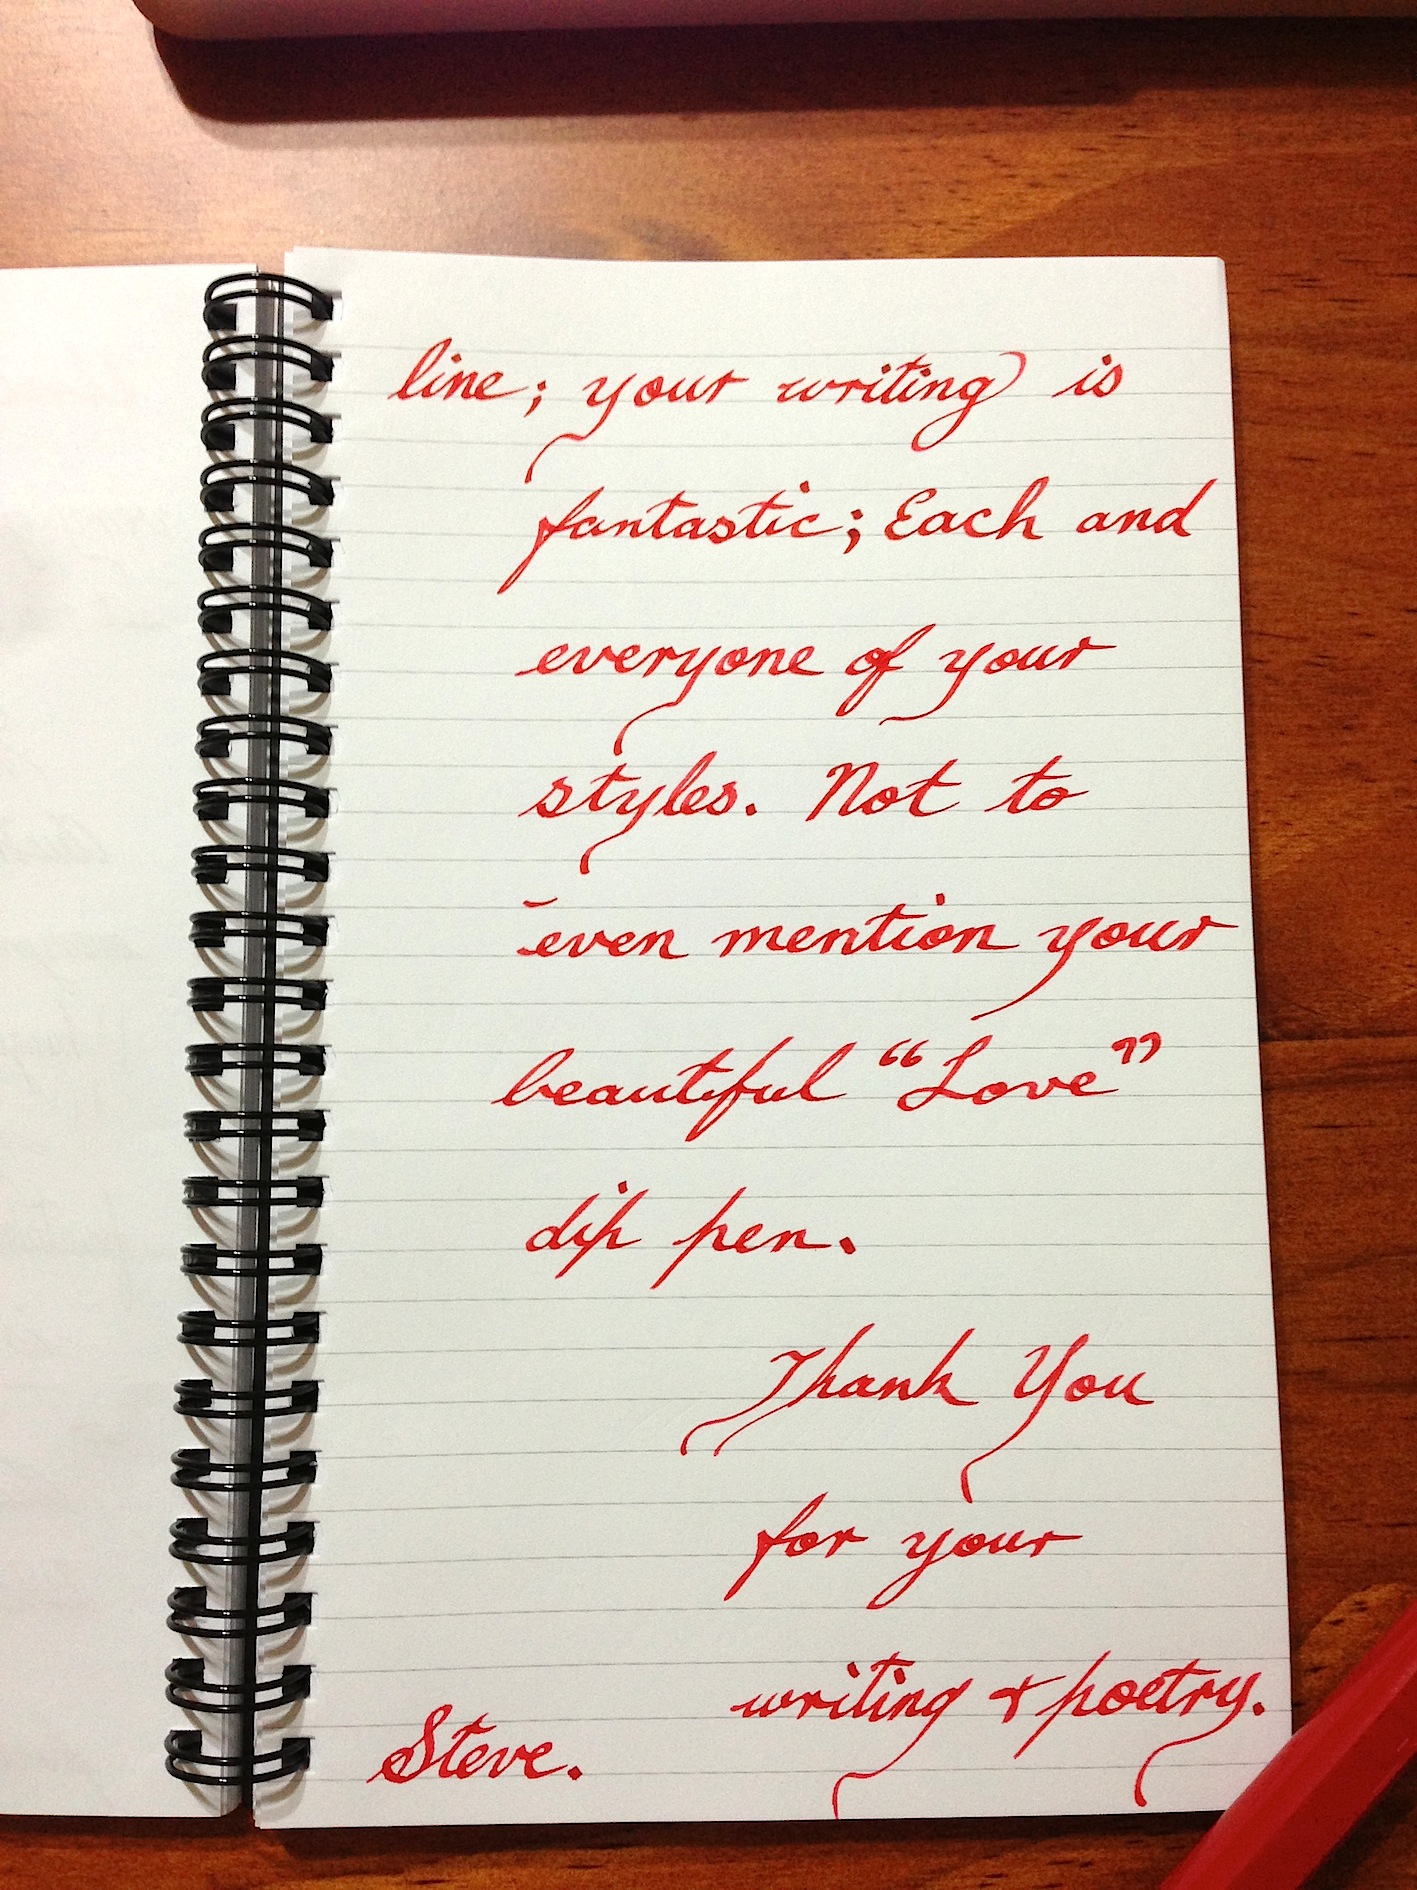 line; your writing is
fantastic; Each and
everyone of your
styles. Not to
even mention your
beautiful “Love”
dip pen.
Thank You
for your
writing & poetry.
Steve.